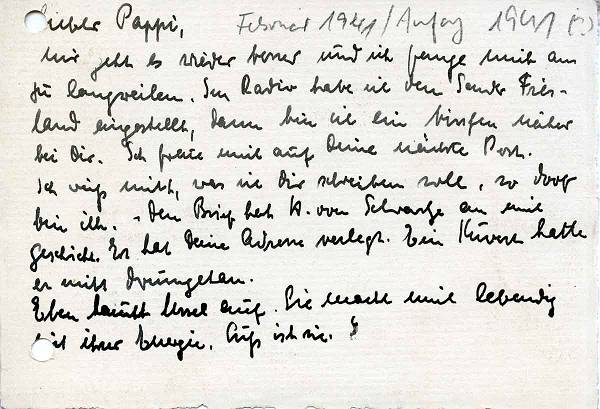 Lieber Pappi, Februar 1941/Anfang 1941 (?)
mir geht es wieder besser und ich fange mich an
zu langweilen. Im Radio habe ich den Sender Fries-
land eingestellt, dann bin ich ein bisschen näher
bei Dir. Ich freue mich auf Deine nächste Post.
Ich weiß nicht, was ich Dir schreiben soll, so doof
bin ich. - Den Brief hat H. von Schwartze an mich
geschickt. Er hat Deine Adresse verlegt. Ein Kuvert hatte
er nicht drumgetan.
Eben taucht Ussel auf. Sie macht mich lebendig
mit ihrer Energie. Süß ist sie.